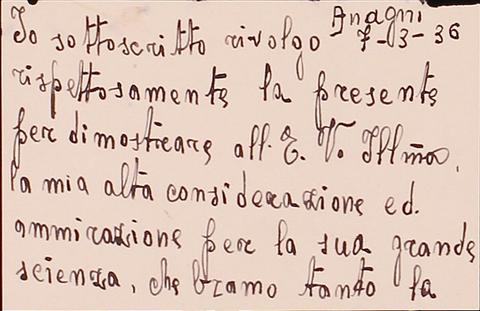 Anagni
7-3-36
Io sottoscritto rivolgo
rispettosamente la presente
per dimostrare all. E. V. Illma,
la mia alta considerazione ed.
ammirazione per la sua grande
scienza, che bramo tanto la